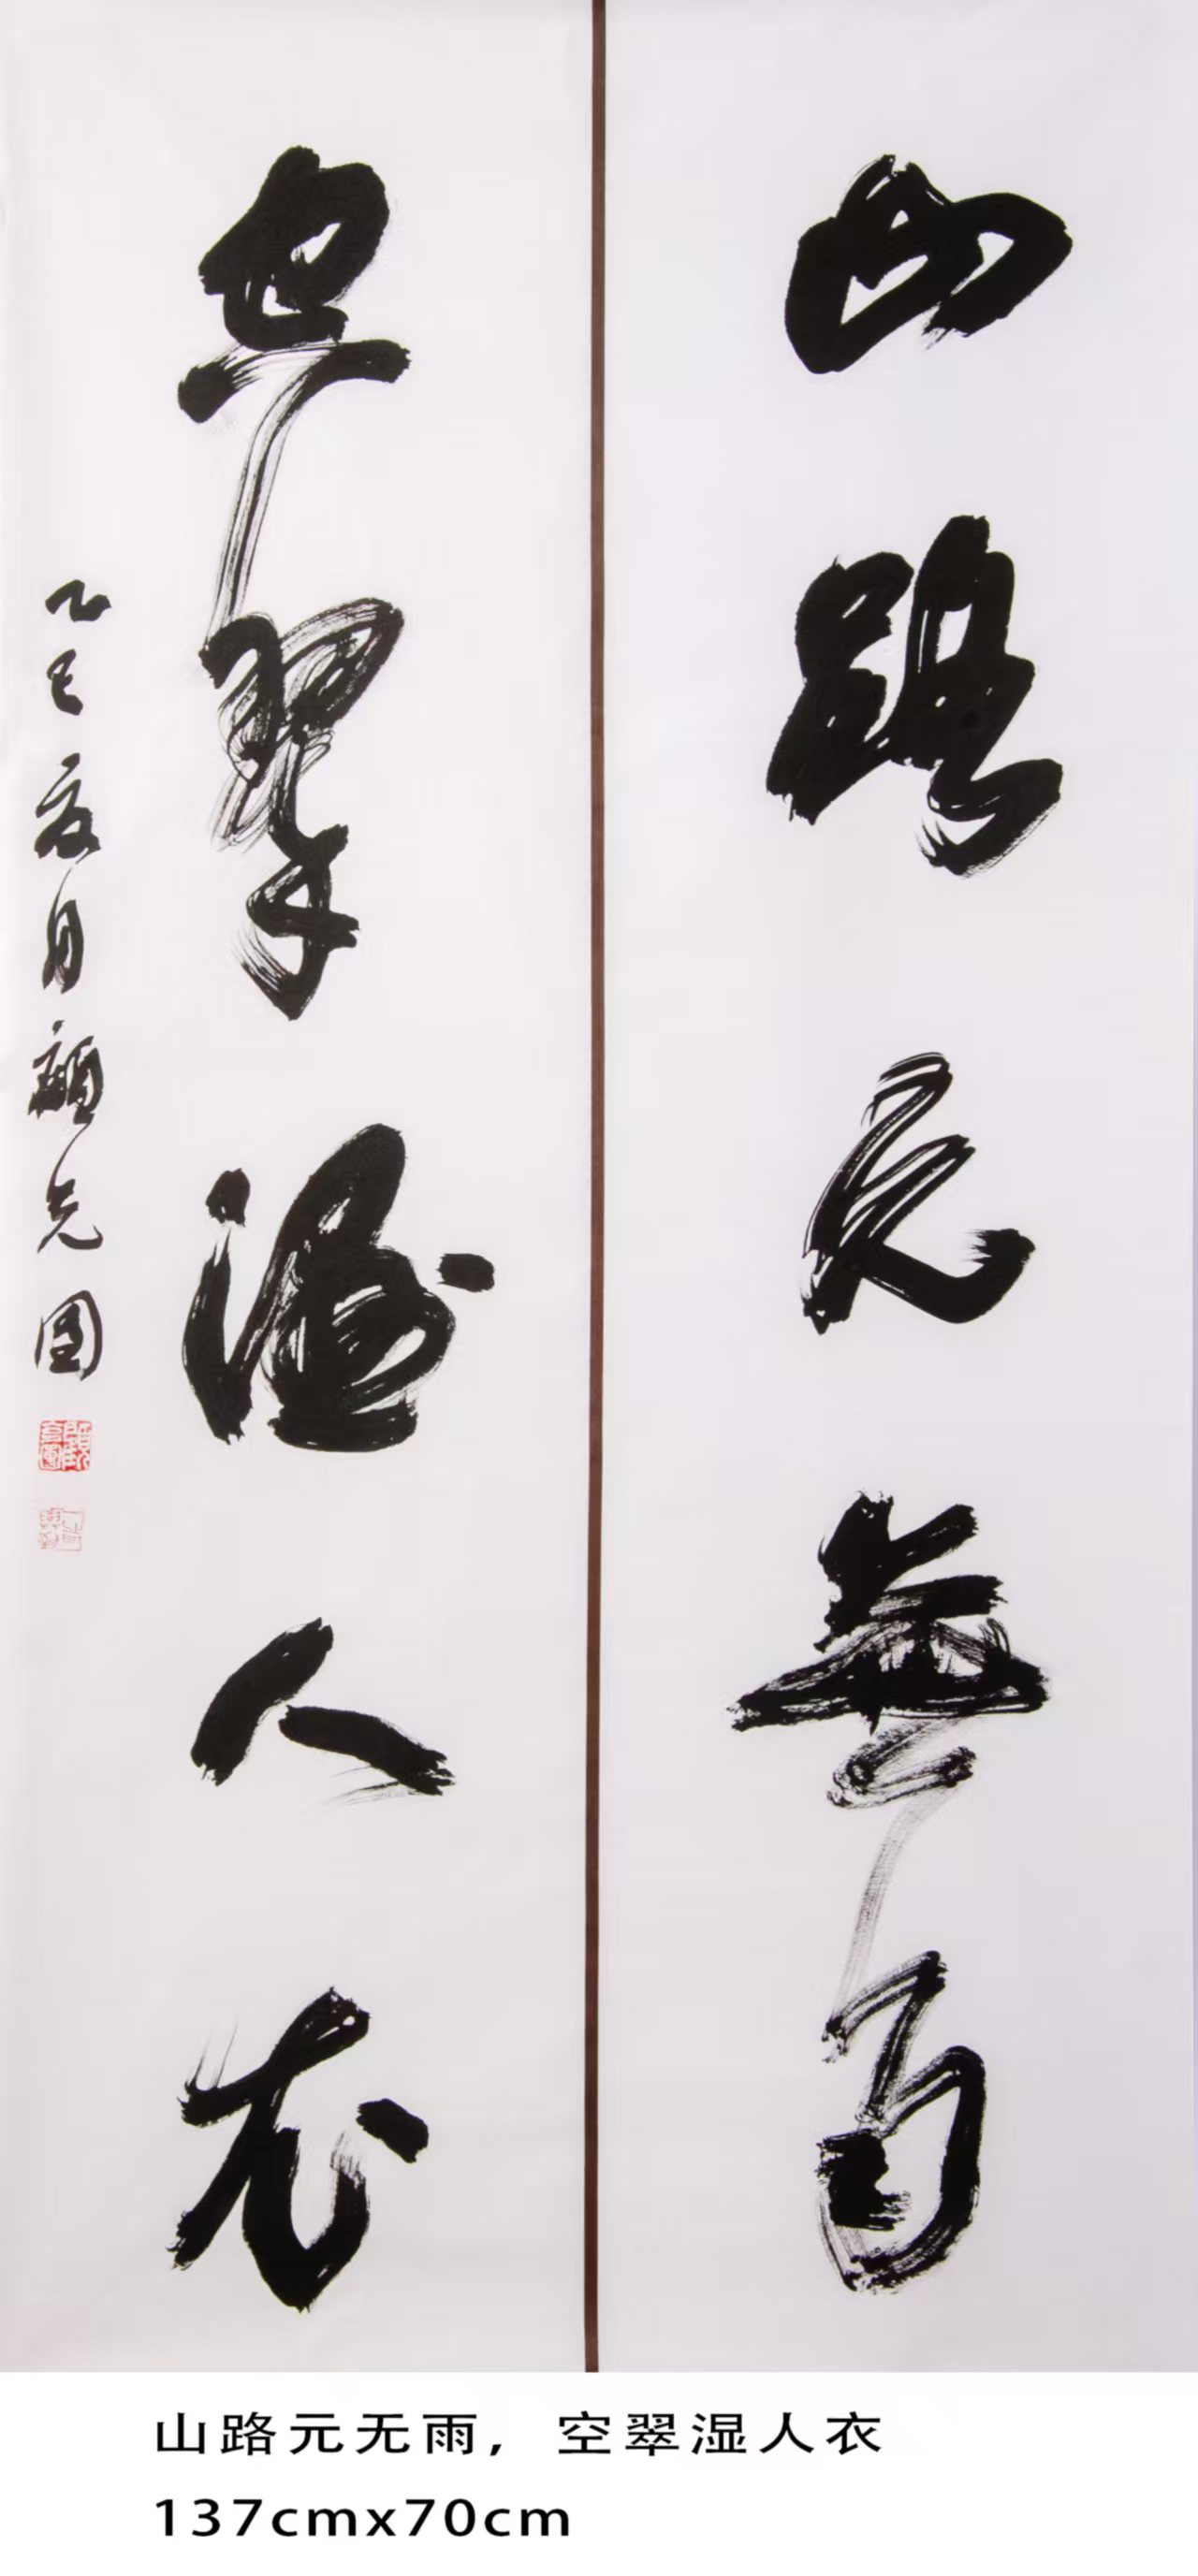 山路元無雨
空翠濕人衣
乙巳夏月顧元園
山路元无雨，空翠湿人衣
137cmx70cm